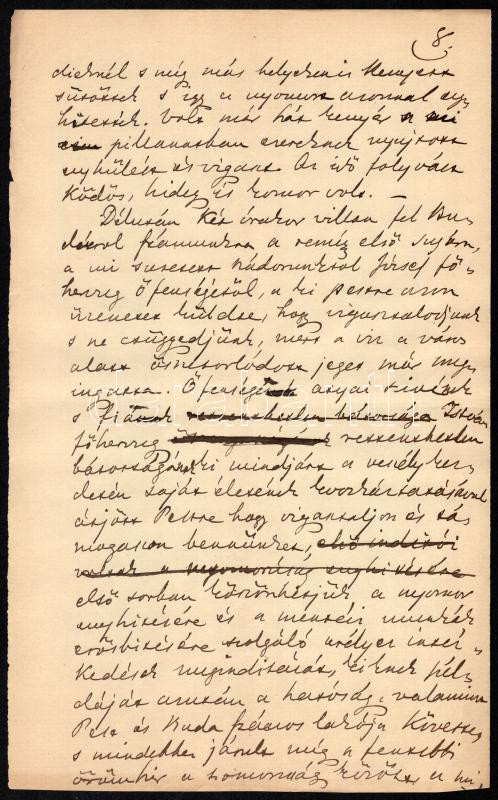 8.
dieknél s még más helyeken is kenyere
sütöttek s így a nyomor azonnal eny-
hittetett. Volt már hát kenyér a mi
pillanatban ezreknek nyújtott
enyhülést és vigaszt. Az idő folyvást
ködös, hideg és komor volt. —
Délután két órakor villan fel Bu-
dáról számunkra a remény első sugára,
a mi szeretett nádorunktól József fő-
herczeg Ő fenségétől, a ki Pestre azon
üzenetet küldte, hogy vigasztalódjunk
s ne csüggedjünk, mert a víz a város
alatt össztorlódott jeget már meg-
ingatta. Ő fenségének atyai szivének
s fiának rettenhetlen bátorsága István
főherczeg rettenhetlen
bátorságának ki mindjárt a veszély kez-
detén saját életének koczkáztatásával
átjött Pestre hogy vigasztaljon és tá-
mogasson bennünket, első inditói
voltak a nyomorúság enyhítésére
első sorban köszönhetjük a nyomor
enyhitésére és a mentési munkák
erősbitésére szolgáló erélyes intéz-
kedések meginditását, kiknek pél-
dáját azután a hatóság, valamint
Pest és Buda számos lakója követte,
s mindehhez járult még a fentebbi
örömhir a szomorúság között, a mi
darabanth